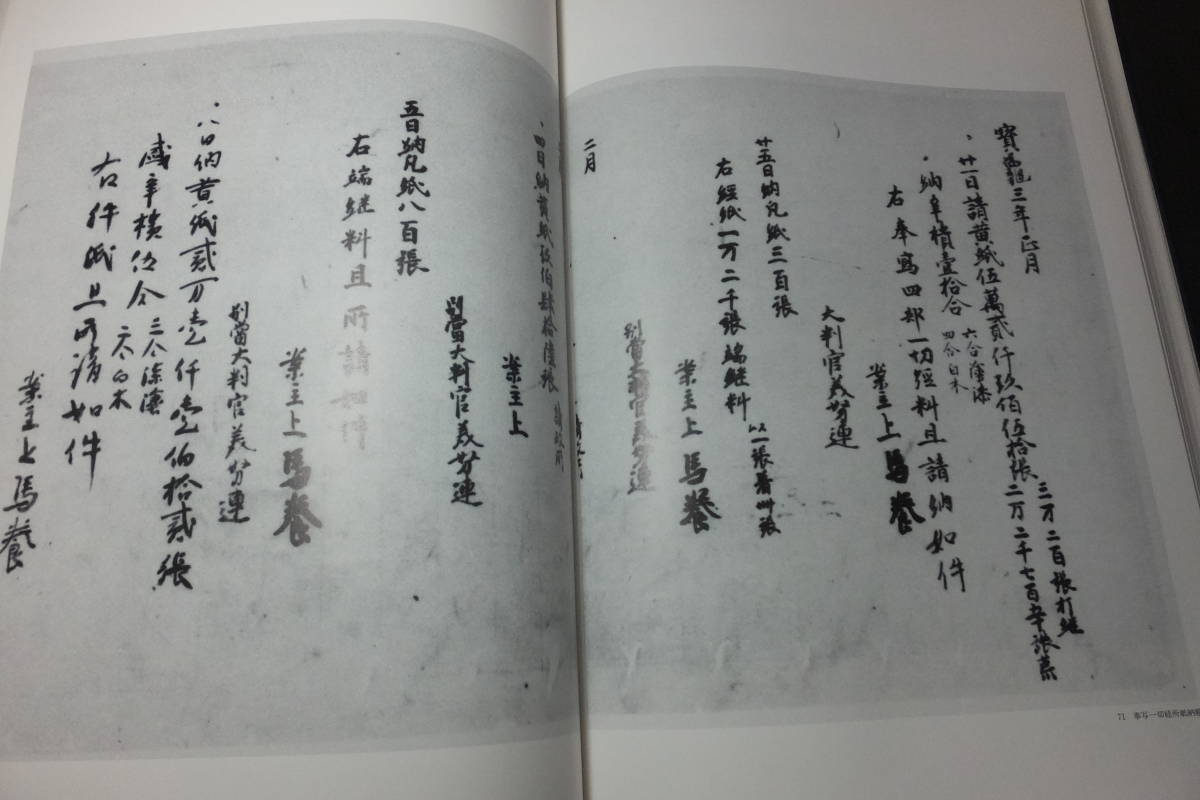 寶龜三年正月
廿一日請黄紙伍萬貳仟玖佰伍拾張 三万二百張打継 二万二千七百五十張荒
納辛樻壹拾合 六合塗漆 四合白木
右奉寫四部一切經料且請納如件
案主上馬養
大判官美努連
廿五日納凡紙三百張 以一張着卌張
右經紙一万二千張端継料
案主上馬養
別當大判官美努連
二月
四日納黄紙伍伯肆拾陸張 請政所
案主上
別當大判官美努連
五日納凡紙八百張
右端継料且所請如件
案主上馬養
別當大判官美努連
八日納黄紙貳万壱仟壱伯拾貳張
盛辛樻伍合 三合塗漆 二合白木
右件紙且所請如件
案主上馬養
71 奉写一切経所紙納帳